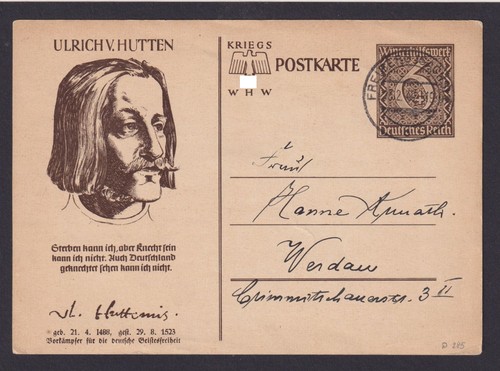 ULRICH V. HUTTEN
KRIEGS
POSTKARTE
WHW
Winterhilfswerk
6
Deutsches Reich
Fräul.
Hanne
Werdau
Crimmitschauerstr. 3 II
Sterben kann ich, aber Knecht sein
kann ich nicht. Auch Deutschland
geknechtet sehen kann ich nicht.
geb. 21. 4. 1488, gest. 29. 8. 1523
Vorkämpfer für die deutsche Geistesfreiheit